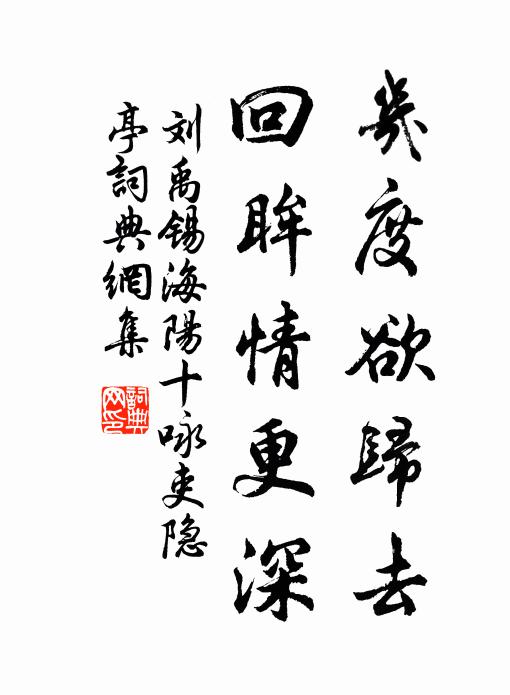 幾度欲歸去
回眸情更深
刘禹锡海陽十咏吏隐
亭詞典網集
詞典
网印